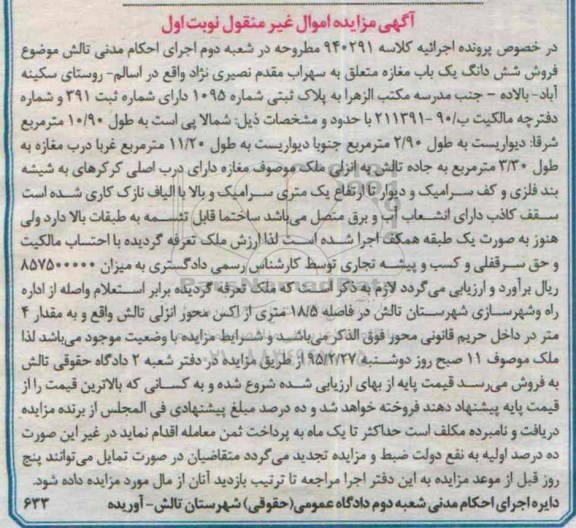 آگهی مزایده اموال غیر منقول نوبت اول
در خصوص پرونده اجرائیه کلاسه ۹۴۰۲۹۱ مطروحه در شعبه دوم اجرای احکام مدنی تالش موضوع
فروش شش دانگ یک باب مغازه متعلق به سهراب مقدم نصیری نژاد واقع در اسالم- روستای سکینه
آباد- بالاده – جنب مدرسه مکتب الزهرا به پلاک ثبتی شماره ۱۰۹۵ دارای شماره ثبت ۳۹۱ و شماره
دفترچه مالکیت ب/۹۰ -۲۱۱۳۹۱ با حدود و مشخصات ذیل: شمالا پی است به طول ۱۰/۹۰ مترمربع
شرقا: دیواریست به طول ۲/۹۰ مترمربع جنوبا دیواریست به طول ۱۱/۲۰ مترمربع غربا درب مغازه به
طول ۳/۳۰ مترمربع به جاده تالش به انزلی ملک موصوف مغازه دارای درب اصلی کرکره‌ای به شیشه
بند فلزی و کف سرامیک و دیوار تا ارتفاع یک متری سرامیک و بالا با الیاف نازک کاری شده است
سقف کاذب دارای انشعاب آب و برق متصل می‌باشد ساختما قابل تئسمه به طبقات بالا دارد ولی
هنوز به صورت یک طبقه همکف اجرا شده است لذا ارزش ملک تعرفه گردیده با احتساب مالکیت
و حق سرقفلی و کسب و پیشه تجاری توسط کارشناس رسمی دادگستری به میزان ۸۵۷۵۰۰۰۰۰
ریال برآورد و ارزیابی می‌گردد لازم به ذکر است که ملک تعرفه گردیده برابر استعلام واصله از اداره
راه وشهرسازی شهرستان تالش در فاصله ۱۸/۵ متری از اکس محور انزلی تالش واقع و به مقدار ۴
متر در داخل حریم قانونی محور فوق الذکر می‌باشد و شرایط مزایده با وضعیت موجود می‌باشد لذا
ملک موصوف ۱۱ صبح روز دوشنبه ۹۵/۲/۲۷ از طریق مزایده در دفتر شعبه ۲ دادگاه حقوقی تالش
به فروش می‌رسد قیمت پایه از بهای ارزیابی شده شروع شده و به کسانی که بالاترین قیمت را از
قیمت پایه پیشنهاد دهند فروخته خواهد شد و ده درصد مبلغ پیشنهادی فی المجلس از برنده مزایده
دریافت و نامبرده مکلف است حداکثر تا یک ماه به پرداخت ثمن معامله اقدام نماید در غیر این صورت
ده درصد اولیه به نفع دولت ضبط و مزایده تجدید می‌گردد متقاضیان در صورت تمایل می‌توانند پنج
روز قبل از موعد مزایده به این دفتر اجرا مراجعه تا ترتیب بازدید آنان از مال مورد مزایده داده شود.
دایره اجرای احکام مدنی شعبه دوم دادگاه عمومی(حقوقی) شهرستان تالش- آوریده ۶۳۳